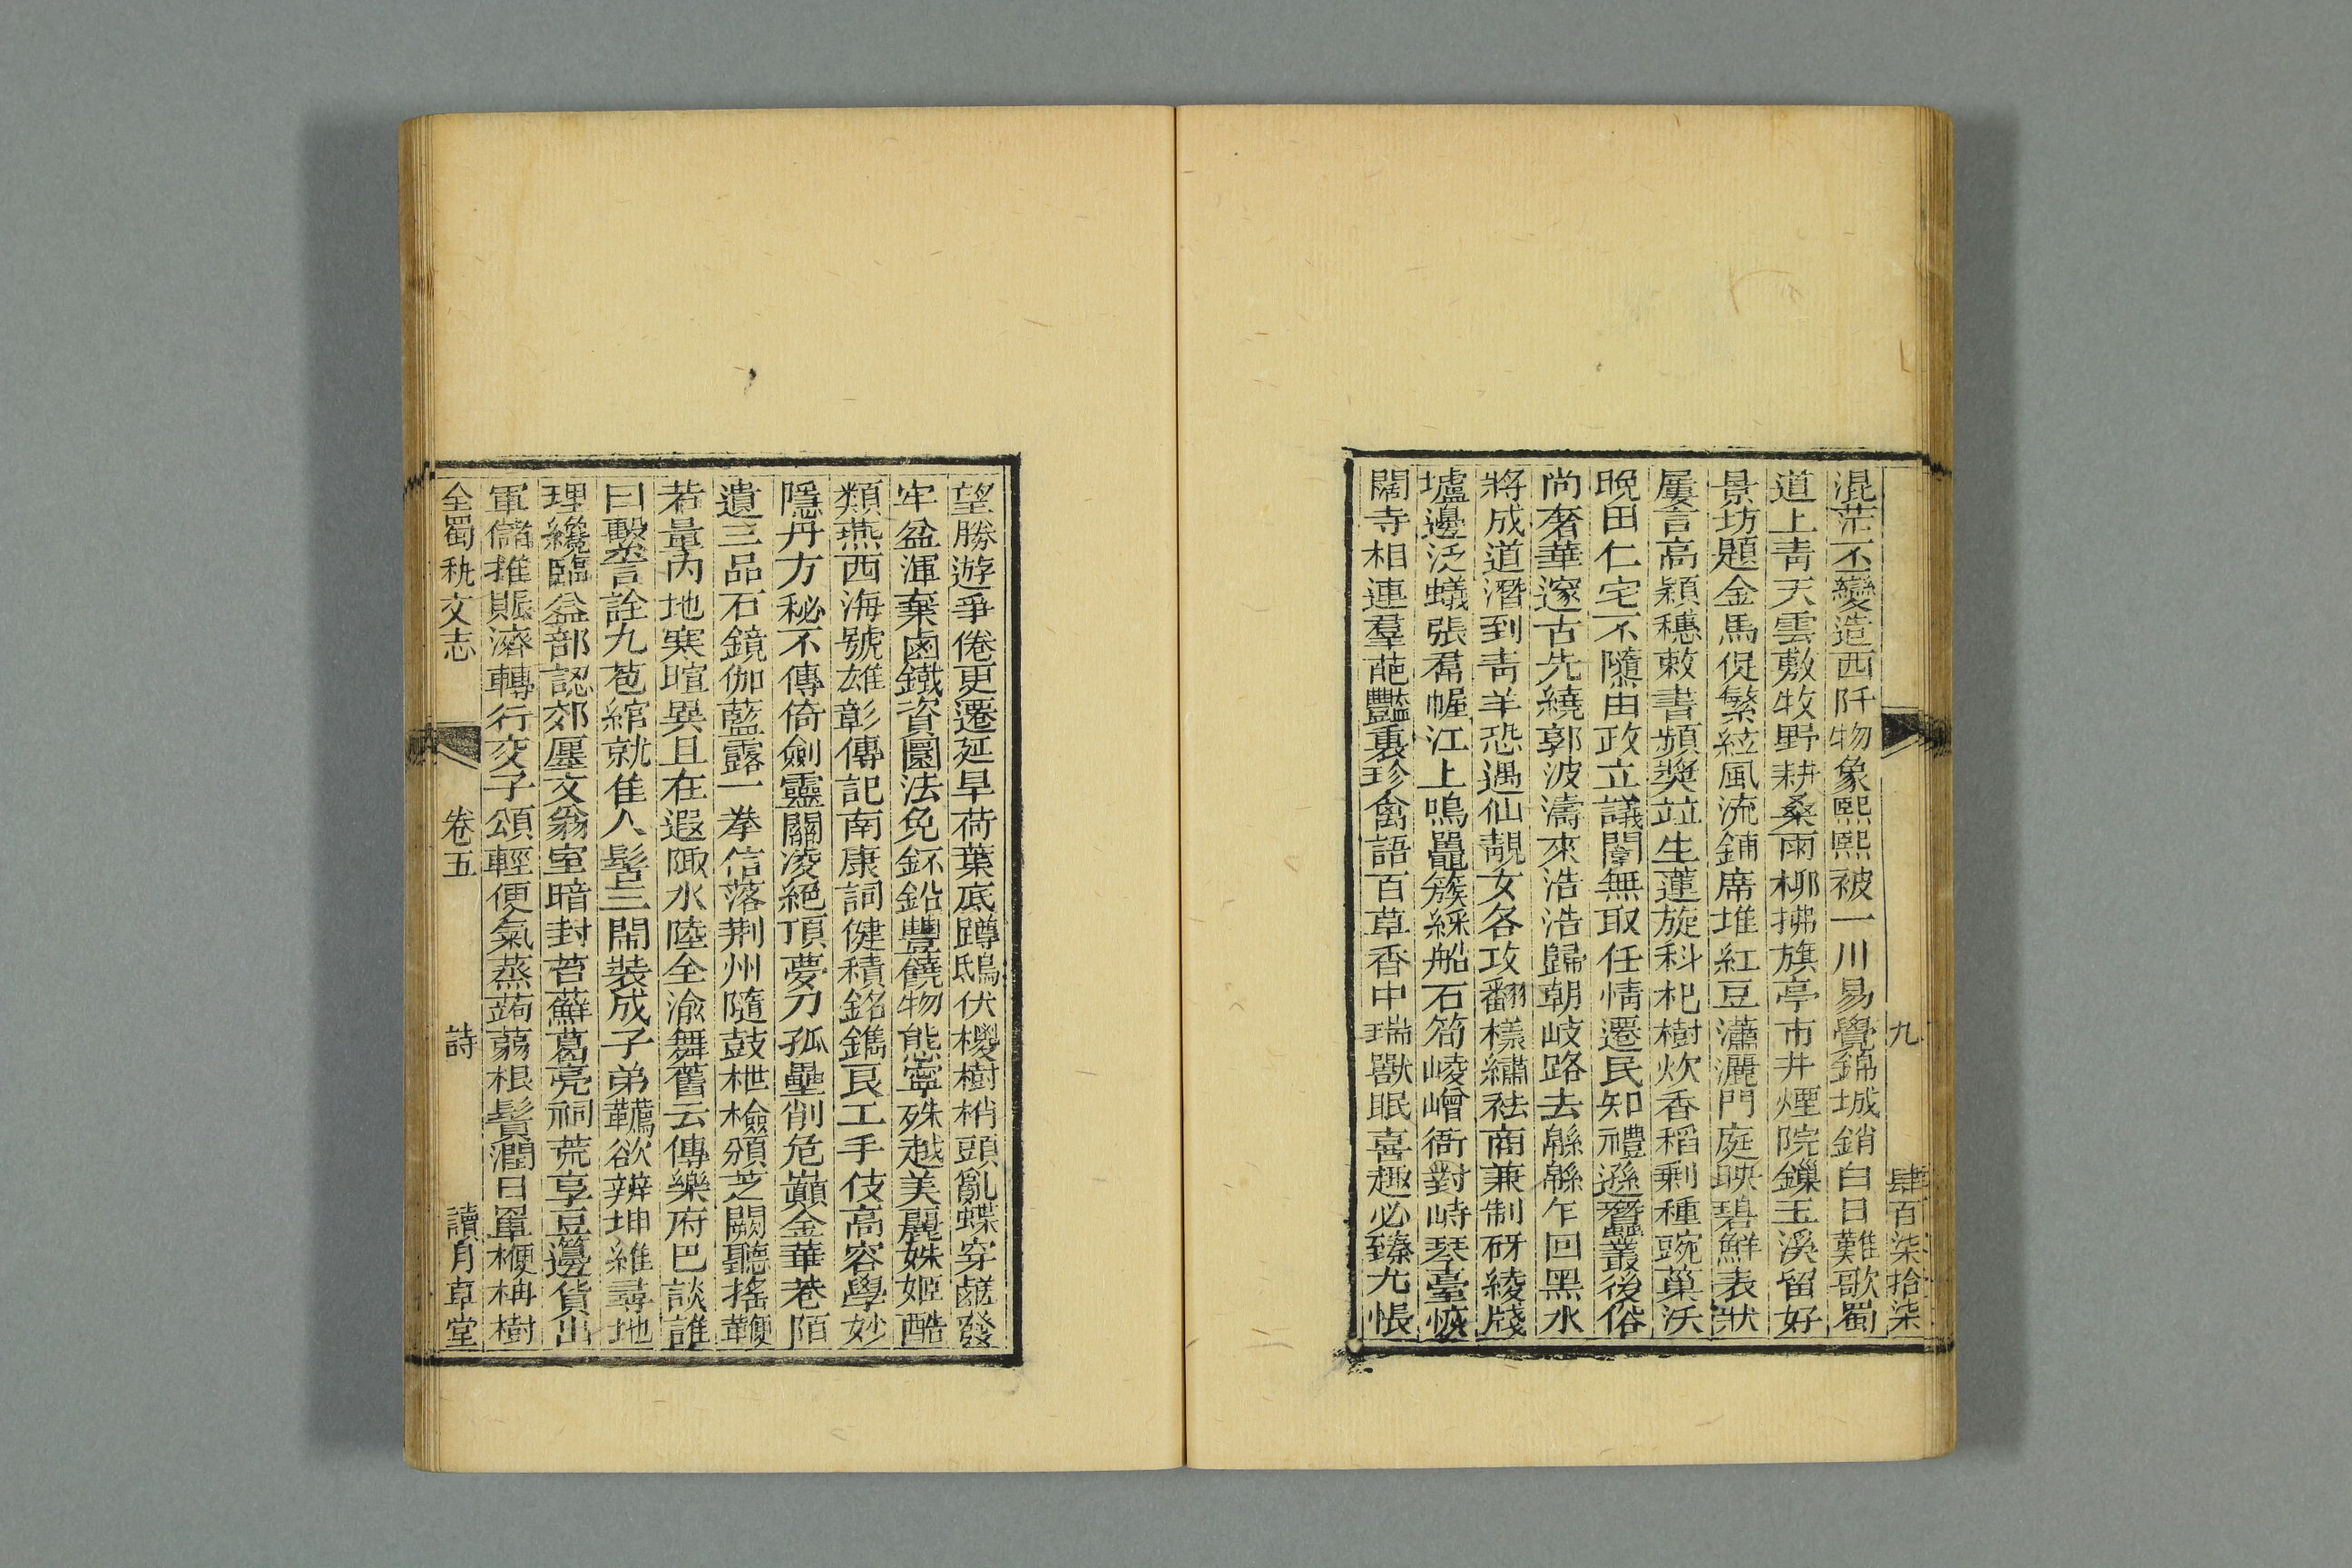 九　肆百柒拾柒
混茫不變造西阡物象熙熙被一川易覺錦城銷白日難歌蜀
道上青天雲敷牧野耕桑雨柳拂旗亭市井煙院鏁玉溪留好
景坊題金馬促繁絃風流鋪席堆紅豆瀟灑門庭映碧鮮表狀
屢言高穎穗敕書頻獎竝生蓮旋科杞樹炊香稻剩種豌菓沃
晚田仁宅不隳由政立議闈無取任情遷民知禮遜蠶叢後俗
尚奢華邃古先繞郭波濤來浩浩歸朝岐路去緜緜乍回黑水
將成道潛到青羊恐遇仙靚女各攻翻樣繡袪商兼制砑綾牋
壚邊泛蟻張羣幄江上鳴鼉簇綵船石筍崚嶒衙對峙琴臺恢
闊寺相連羣葩豔裏珍禽語百草香中瑞獸眠喜趣必臻尤悵
望勝遊爭倦更遷延旱荷葉底蹲鴟伏椶樹梢頭亂蝶穿鹺發
牢盆渾棄鹵鐵資圜法免鈈鉛豐饒物態寧殊越美麗姝姬酷
類燕西海號雄彰傳記南康詞健積銘鐫艮工手伎高容學妙
隱丹方秘不傳倚劍靈關凌絕頂夢刀孤壘削危巔金華巷陌
遺三品石鏡伽藍露一拳信落荆州隨鼓枻檢頒芝闕聽搖鞭
若量內地寒暄異且在遐陬水陸全渝舞舊云傳樂府巴談誰
曰繫言詮九苞綰就隹人髻三閙裝成子弟韉欲辨坤維尋地
理纔臨益部認郊廛文翁室暗封苔蘚葛亮祠荒享豆籩貨出
軍儲推賑濟轉行交子頌輕便氣蒸蒟蒻根鬚潤日罩楩柟樹
全蜀秇文志　卷五　詩　讀月草堂